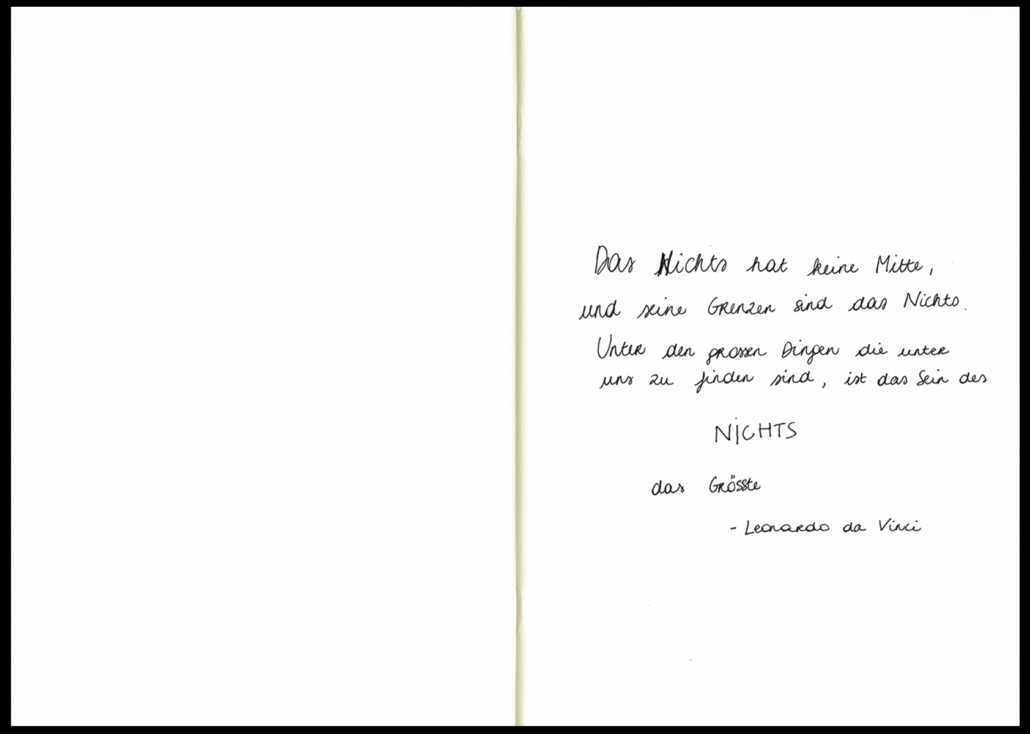 Das Nichts hat keine Mitte,
und seine Grenzen sind das Nichts.
Unter den grossen Dingen die unter
uns zu finden sind, ist das Sein des
NICHTS
das Grösste
- Leonardo da Vinci